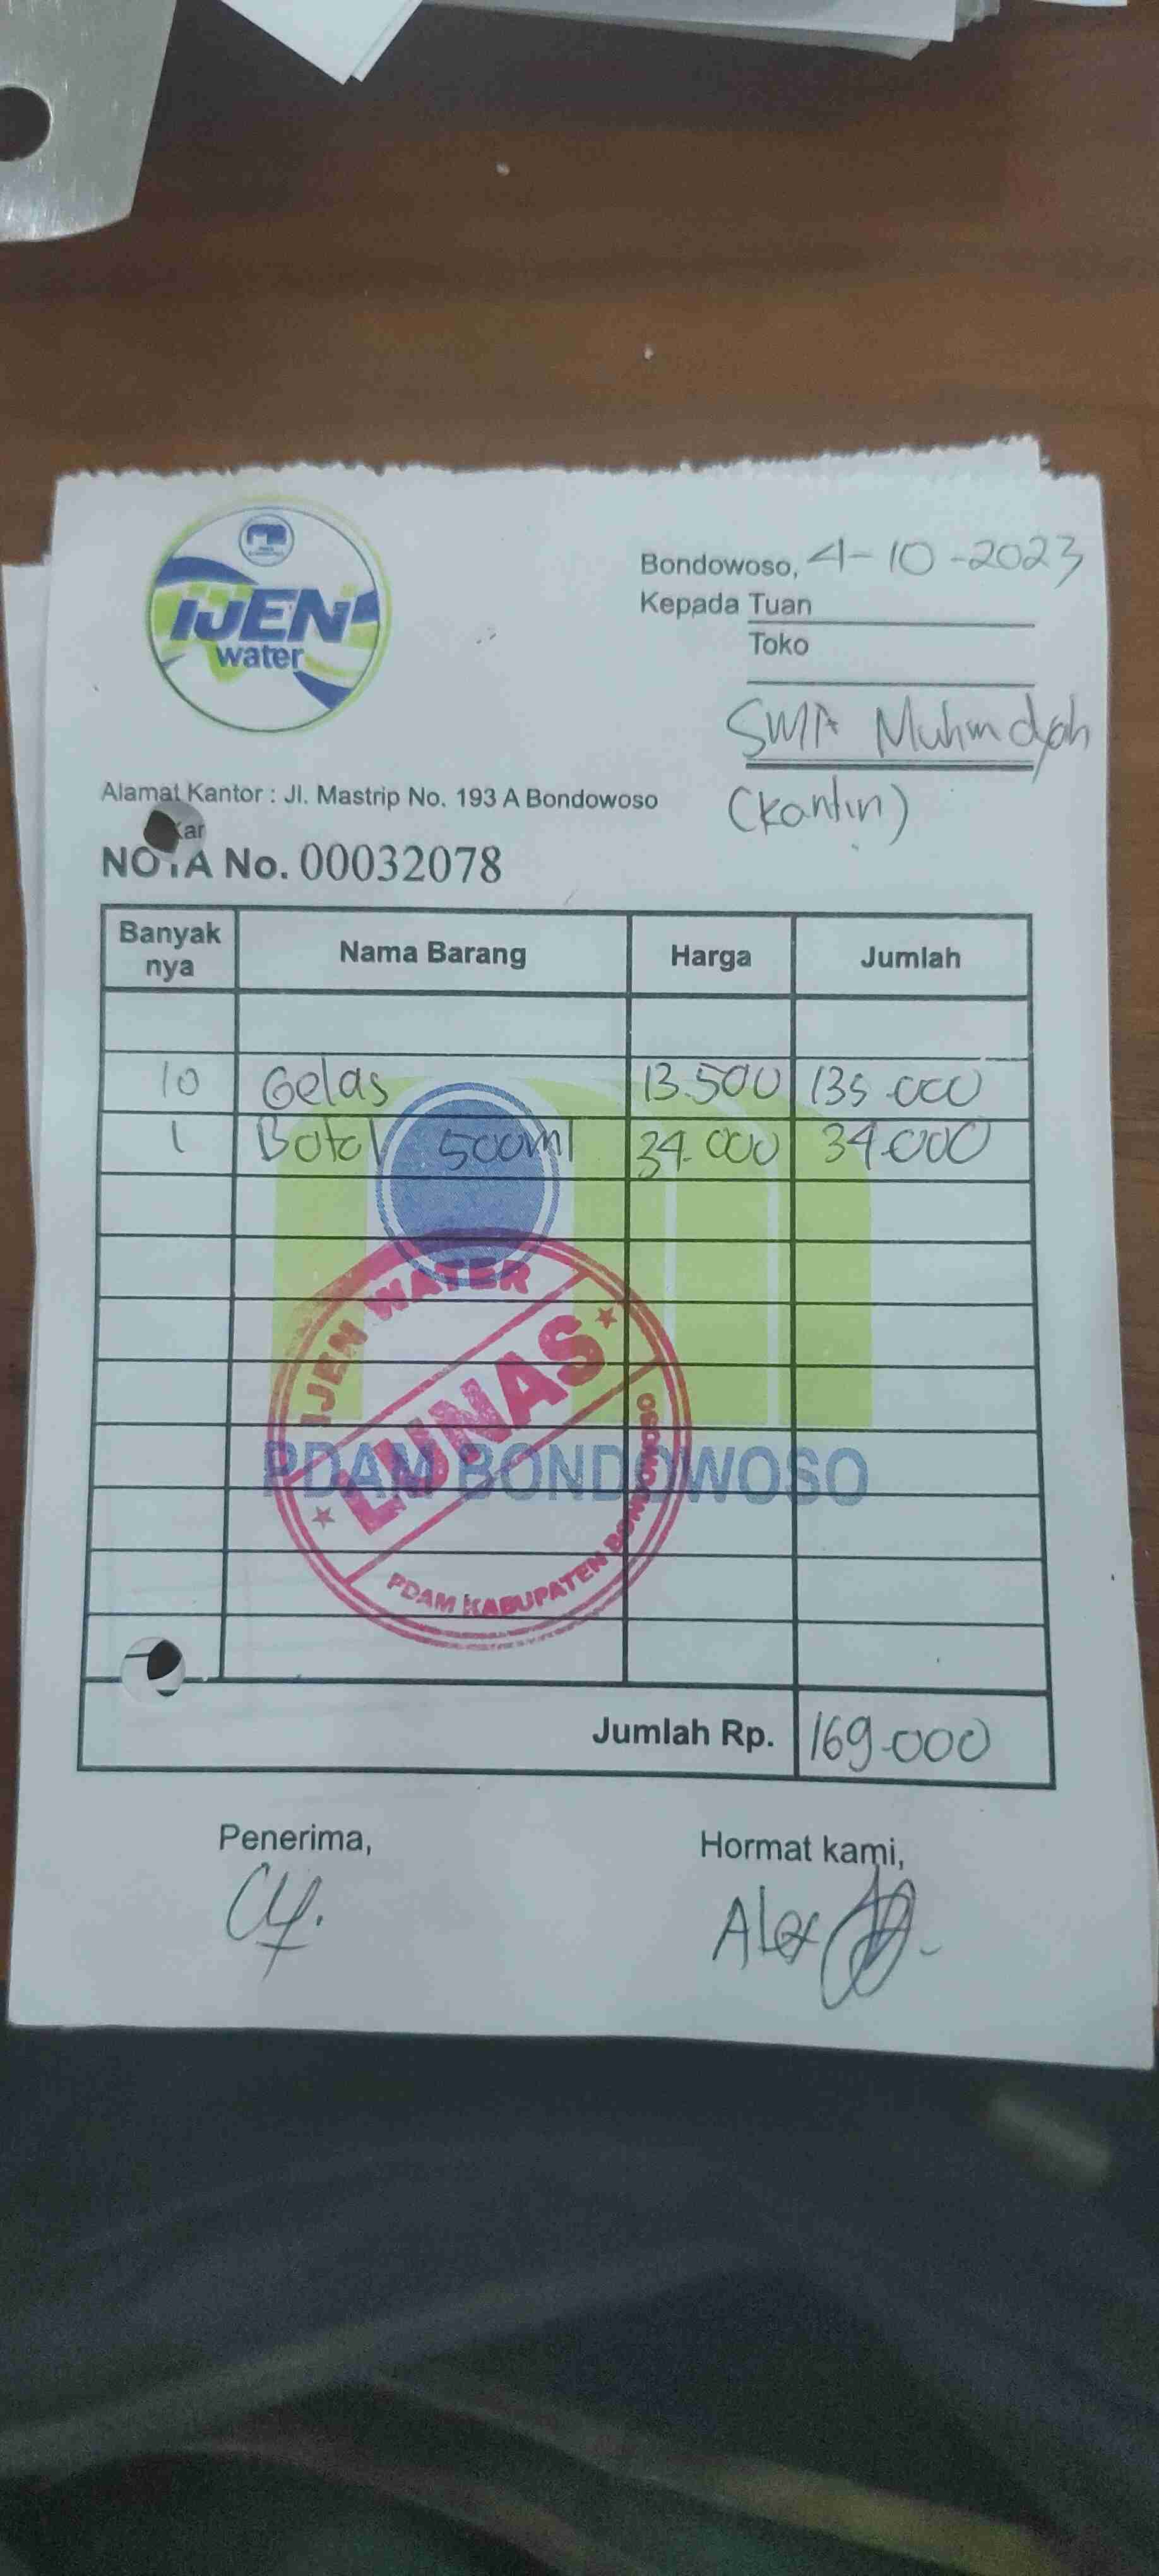 IJEN
water
Bondowoso, 4-10-2023
Kepada Tuan
Toko
SMA Muhmdyah
(kantin)
Alamat Kantor : Jl. Mastrip No. 193 A Bondowoso
NOTA No. 00032078
Banyak nya Nama Barang Harga Jumlah
10 Gelas 13.500 135.000
1 Botol 500ml 34.000 34.000
IJEN WATER
LUNAS
PDAM KABUPATEN BONDOWOSO
PDAM BONDOWOSO
Jumlah Rp. 169.000
Penerima,
Hormat kami,
Alex